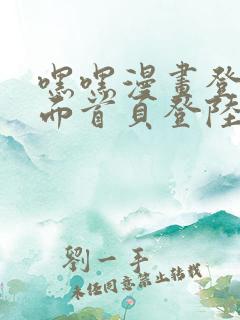 嘿嘿漫畫登
面首頁登陸
劉一手
未經同意禁止轉載